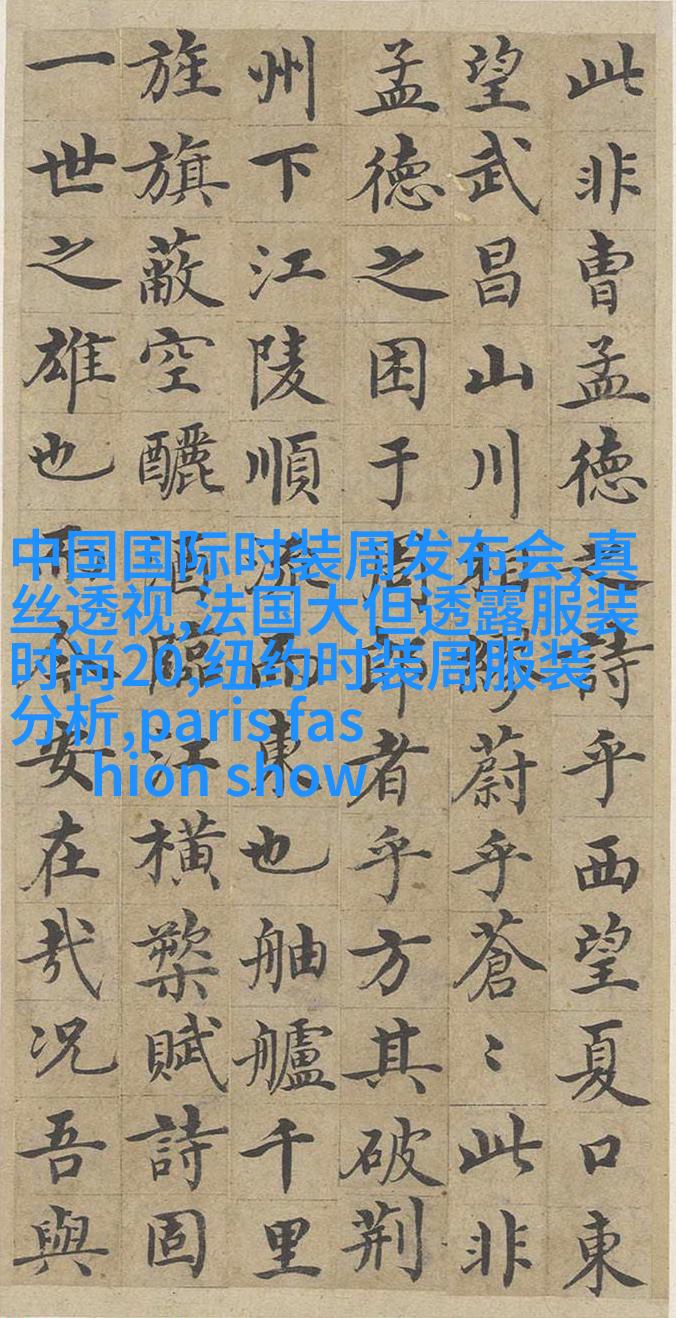 此非曹孟德之詩乎西望夏口東
望武昌山川相繆蔚乎蒼〻此非
孟德之困于周郎者乎方其破荆
州下江陵順流而東也舳艫千里
旌旗蔽空釃酒臨江橫槊賦詩固
一世之雄也而今安在哉况吾與
中国国际时装周发布会,真
丝透视,法国大但透露服装
时尚20,纽约时装周服装
分析,paris fas
hion show